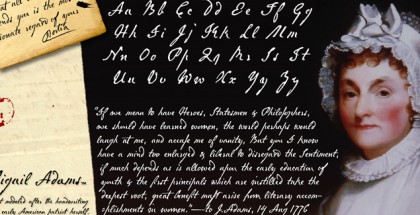 is the most
ionate regard of yours
Portia
Aa Bb Cc Dd Ee Ff Gg
Hh Ii Jj Kk Ll Mm
Nn Oo Pp Qq Rr Ss Tt
Uu Vv Ww Xx Yy Zz
"If we mean to have Heroes, Statesmen & Philosophers,
we should have learned women, the world perhaps would
laugh at me, and accuse me of vanity, But you I know
have a mind too enlarged & liberal to disregard the Sentiment,
if much depends as is allowed upon the early education of
youth & the first principals which are instilled take the
deepest root, great benefit must arise from literary accom-
plishments in women." — to J. Adams, 14 Aug 1776
bigail Adams
nt modeled after the handwriting
early American patriot herself.